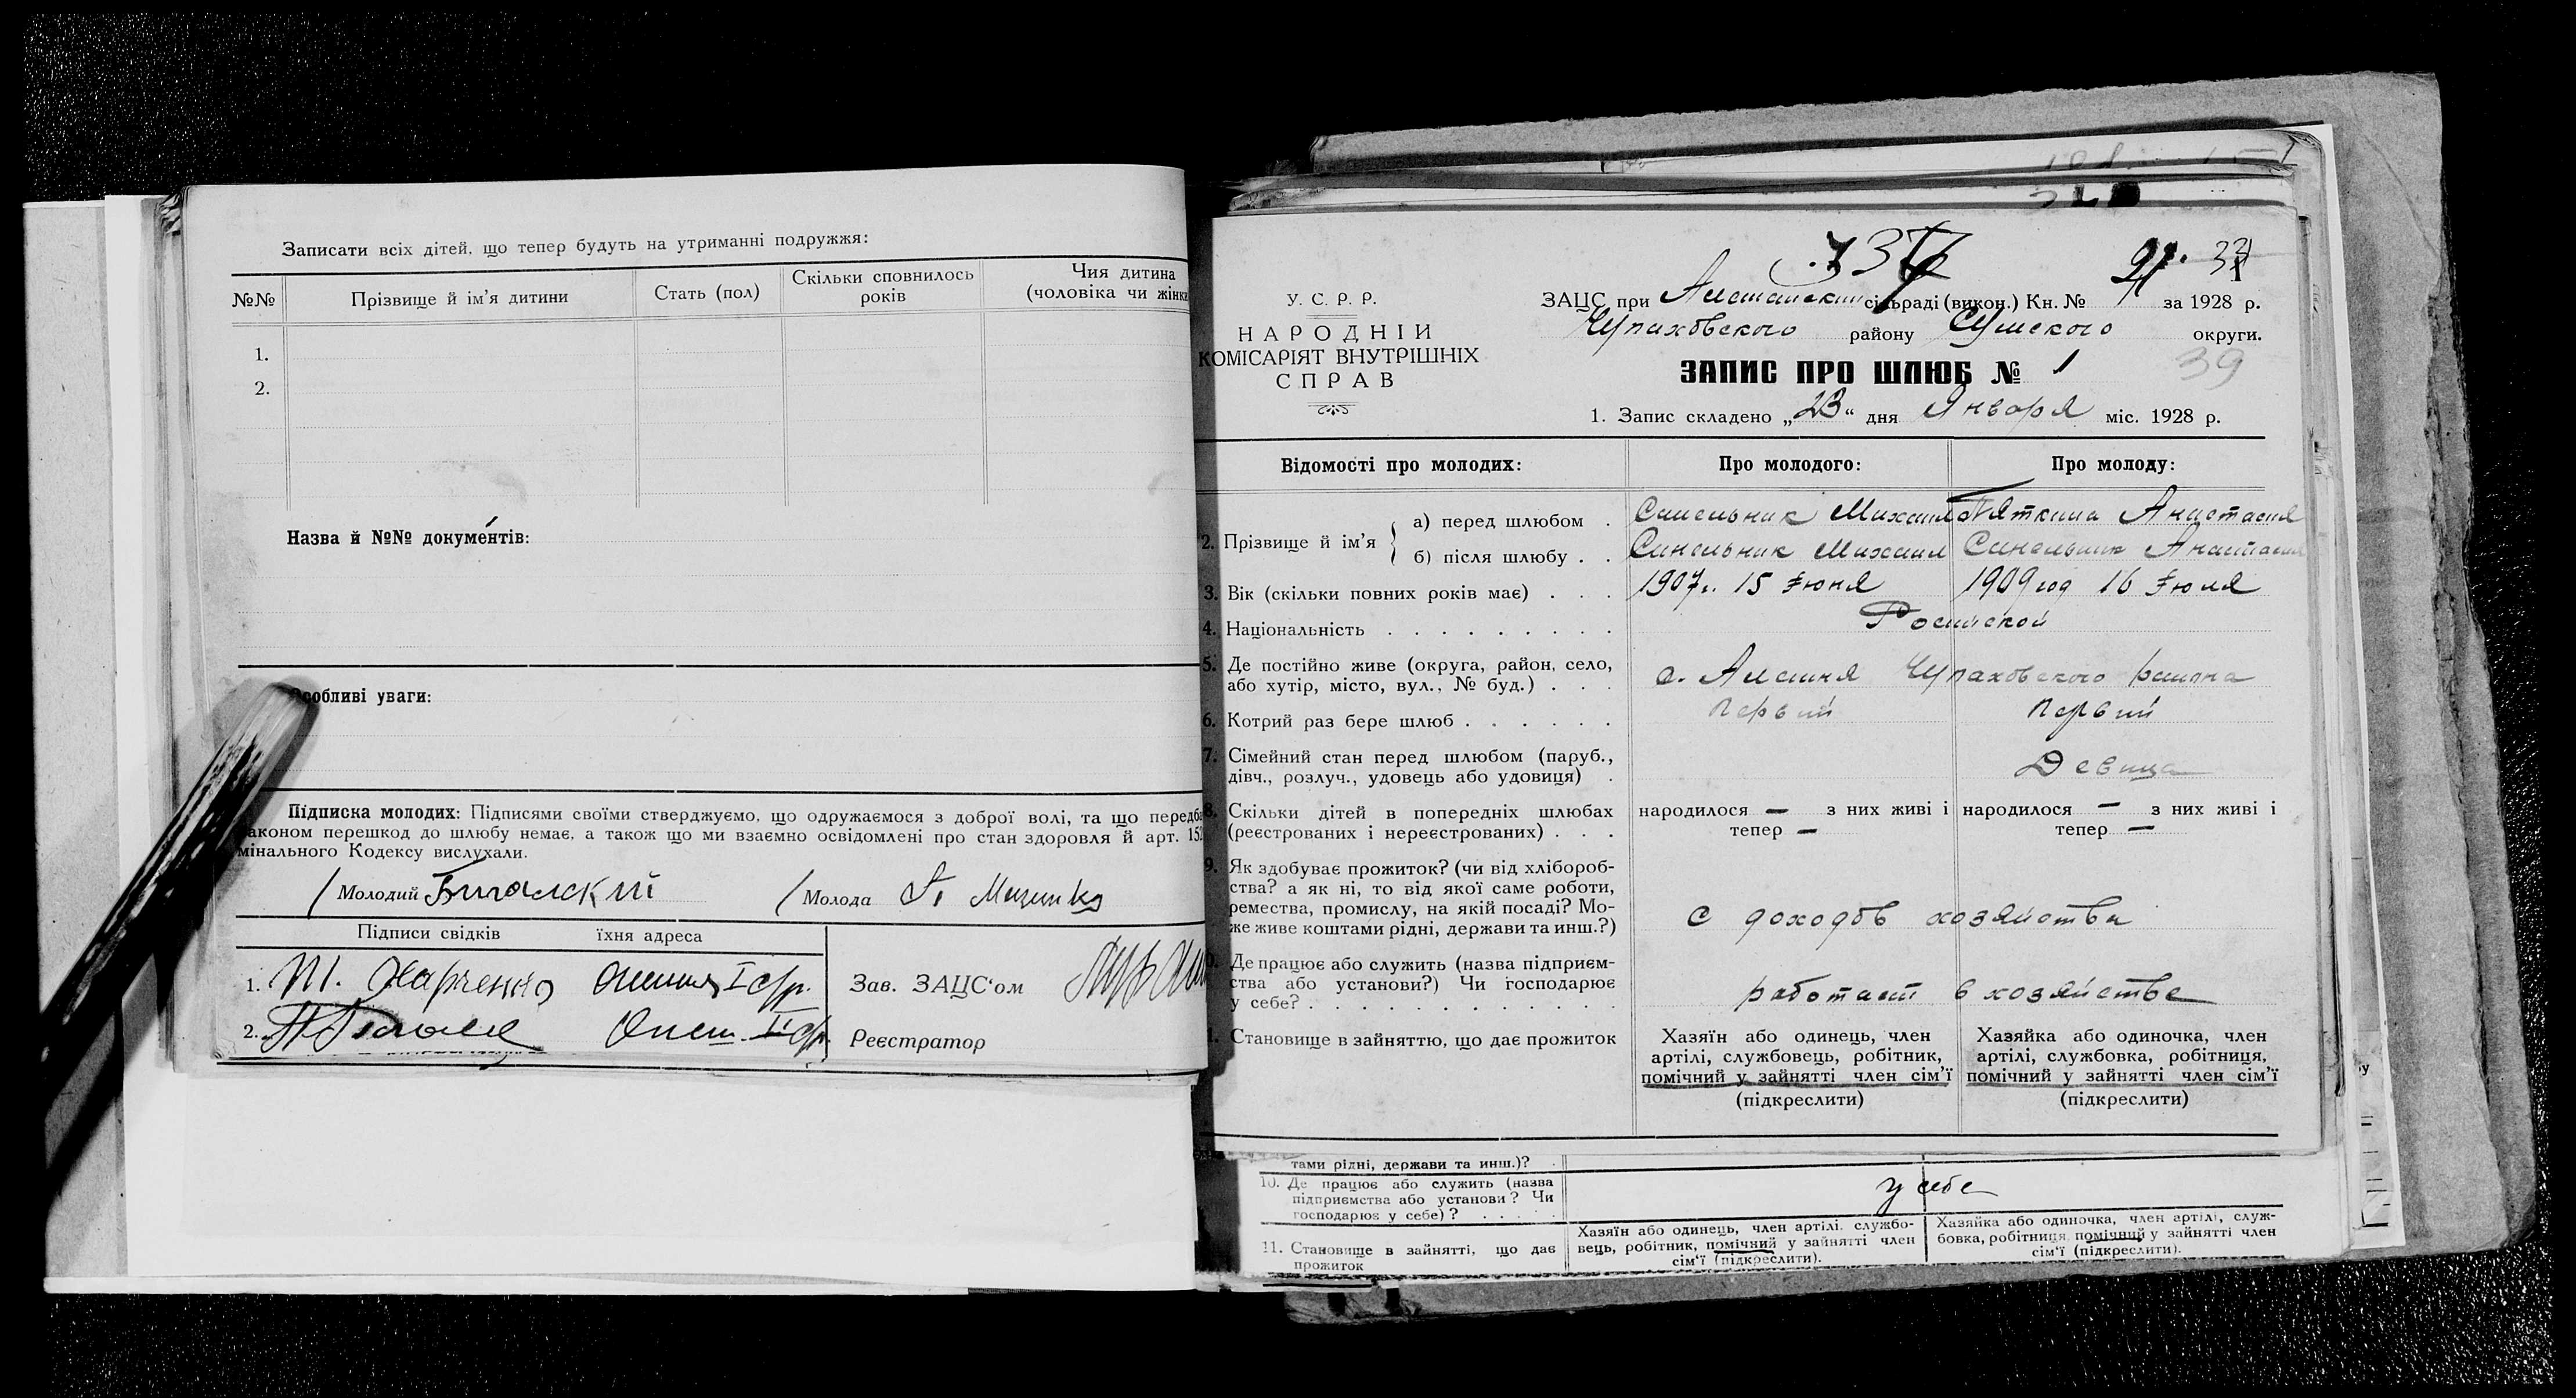 Записати всіх дітей, що тепер будуть на утриманні подружжя:
№№ Прізвище й ім'я дитини Стать (пол) Скільки сповнилось років Чия дитина (чоловіка чи жінки
1.
2.
Назва й №№ документів:
Особливі уваги:
Підписка молодих: Підписями своїми стверджуємо, що одружаємося з доброї волі, та що передба
законом перешкод до шлюбу немає, а також що ми взаємно освідомлені про стан здоровля й арт. 15
мінального Кодексу вислухали.
Молодий Молода
Підписи свідків їхня адреса
1. Харченко
2.
Зав. ЗАЦС'ом
Реєстратор
У. С. Р. Р.
НАРОДНІЙ
КОМІСАРІЯТ ВНУТРІШНІХ
СПРАВ
ЗАЦС при сільраді (викон.) Кн. № за 1928 р.
району Сумского округи.
39
ЗАПИС ПРО ШЛЮБ № 1
1. Запис складено „23“ дня Января міс. 1928 р.
Відомості про молодих: Про молодого: Про молоду:
2. Прізвище й ім'я
а) перед шлюбом . Синельник Михаил Пяткина Анастасия
б) після шлюбу . . Синельник Михаил Синельник Анастасия
3. Вік (скільки повних років має) . . . 1907г. 15 Іюня 1909 год 16 Іюля
4. Національність . . . . . . . . . Росийской
5. Де постійно живе (округа, район, село,
або хутір, місто, вул., № буд.) . . . с. района
6. Котрий раз бере шлюб . . . . . . Первий Первий
7. Сімейний стан перед шлюбом (паруб.,
дівч., розлуч., удовець або удовиця) . Девица
8. Скільки дітей в попередніх шлюбах
(реєстрованих і нереєстрованих) . . .
народилося — з них живі і
тепер —
народилося — з них живі і
тепер —
9. Як здобуває прожиток? (чи від хлібороб-
ства? а як ні, то від якої саме роботи,
ремества, промислу, на якій посаді? Мо-
же живе коштами рідні, держави та инш.?)
с доходов хозяйства
10. Де працює або служить (назва підприєм-
ства або установи?) Чи господарює
у себе? . . . . . . . . . . . .
работает в хозяйстве
11. Становище в зайняттю, що дає прожиток
Хазяїн або одинець, член
артілі, службовець, робітник,
помічний у зайнятті член сім'ї
(підкреслити)
Хазяйка або одиночка, член
артілі, службовка, робітниця,
помічний у зайнятті член сім'ї
(підкреслити)
тами рідні, держави та инш.)?
10. Де працює або служить (назва
підприємства або установи? Чи
господарює у себе)? . . . . .
у себе
11. Становище в зайнятті, що дає
прожиток
Хазяїн або одинець, член артілі, службо-
вець, робітник, помічний у зайнятті член
сім'ї (підкреслити).
Хазяйка або одиночка, член артілі, служ-
бовка, робітниця, помічний у зайнятті член
сім'ї (підкреслити).